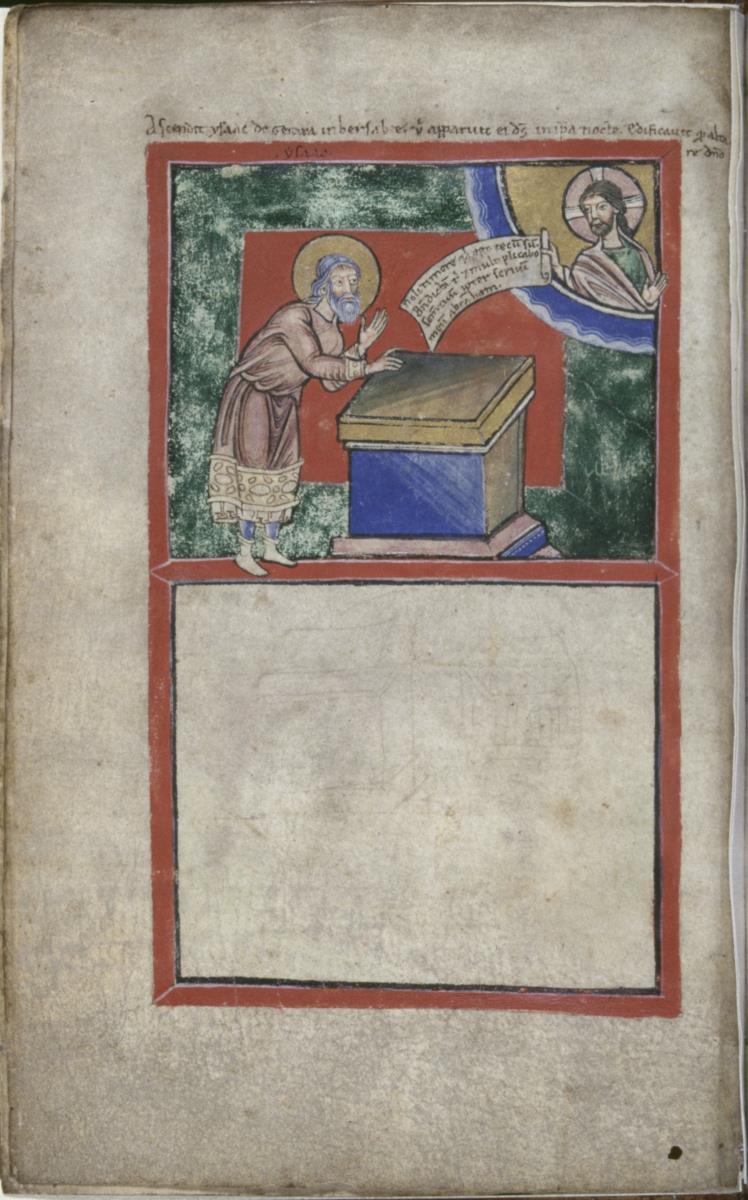 Ascendit ysaac de gerara in bersabee. ubi apparuit ei dns in ipa nocte. edificauit q altare dno
ysaac
Noli timere. quia ego tecu su.
Bndica ti 7 multiplicabo
semen tuu ppter seruu
meu abraham.